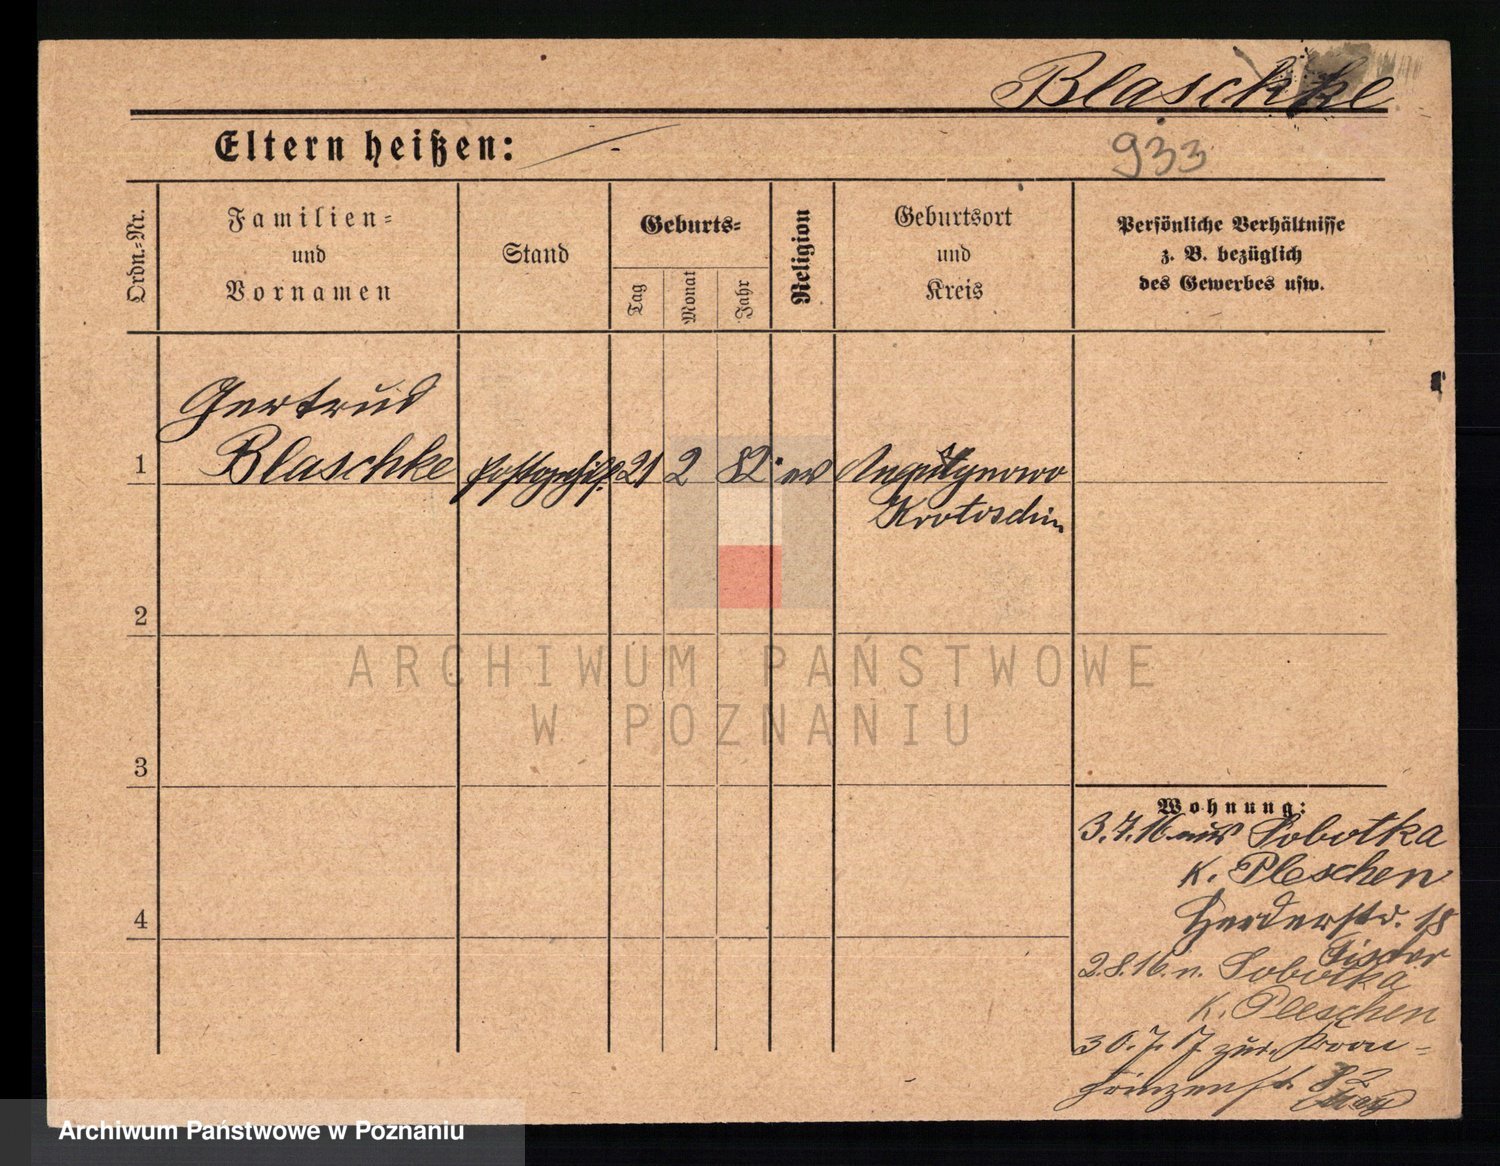 Blaschke
Eltern heißen: -
933
Ordn.-Nr.
Familien-
und
Vornamen
Stand
Geburts-
Tag
Monat
Jahr
Religion
Geburtsort
und
Kreis
Persönliche Verhältnisse
z. B. bezüglich
des Gewerbes usw.
Gertrud
1 Blaschke Postgehilf. 21 2 82 ev
Krotoschin
2
3
4
Wohnung:
3.7.16 aus Sobotka
K. Pleschen
Herderstr. 18
2.8.16. n. Sobotka
K. Pleschen
30.7.17 zur. Kron-
prinzenst. 82
ARCHIWUM PAŃSTWOWE
W POZNANIU
Archiwum Państwowe w Poznaniu